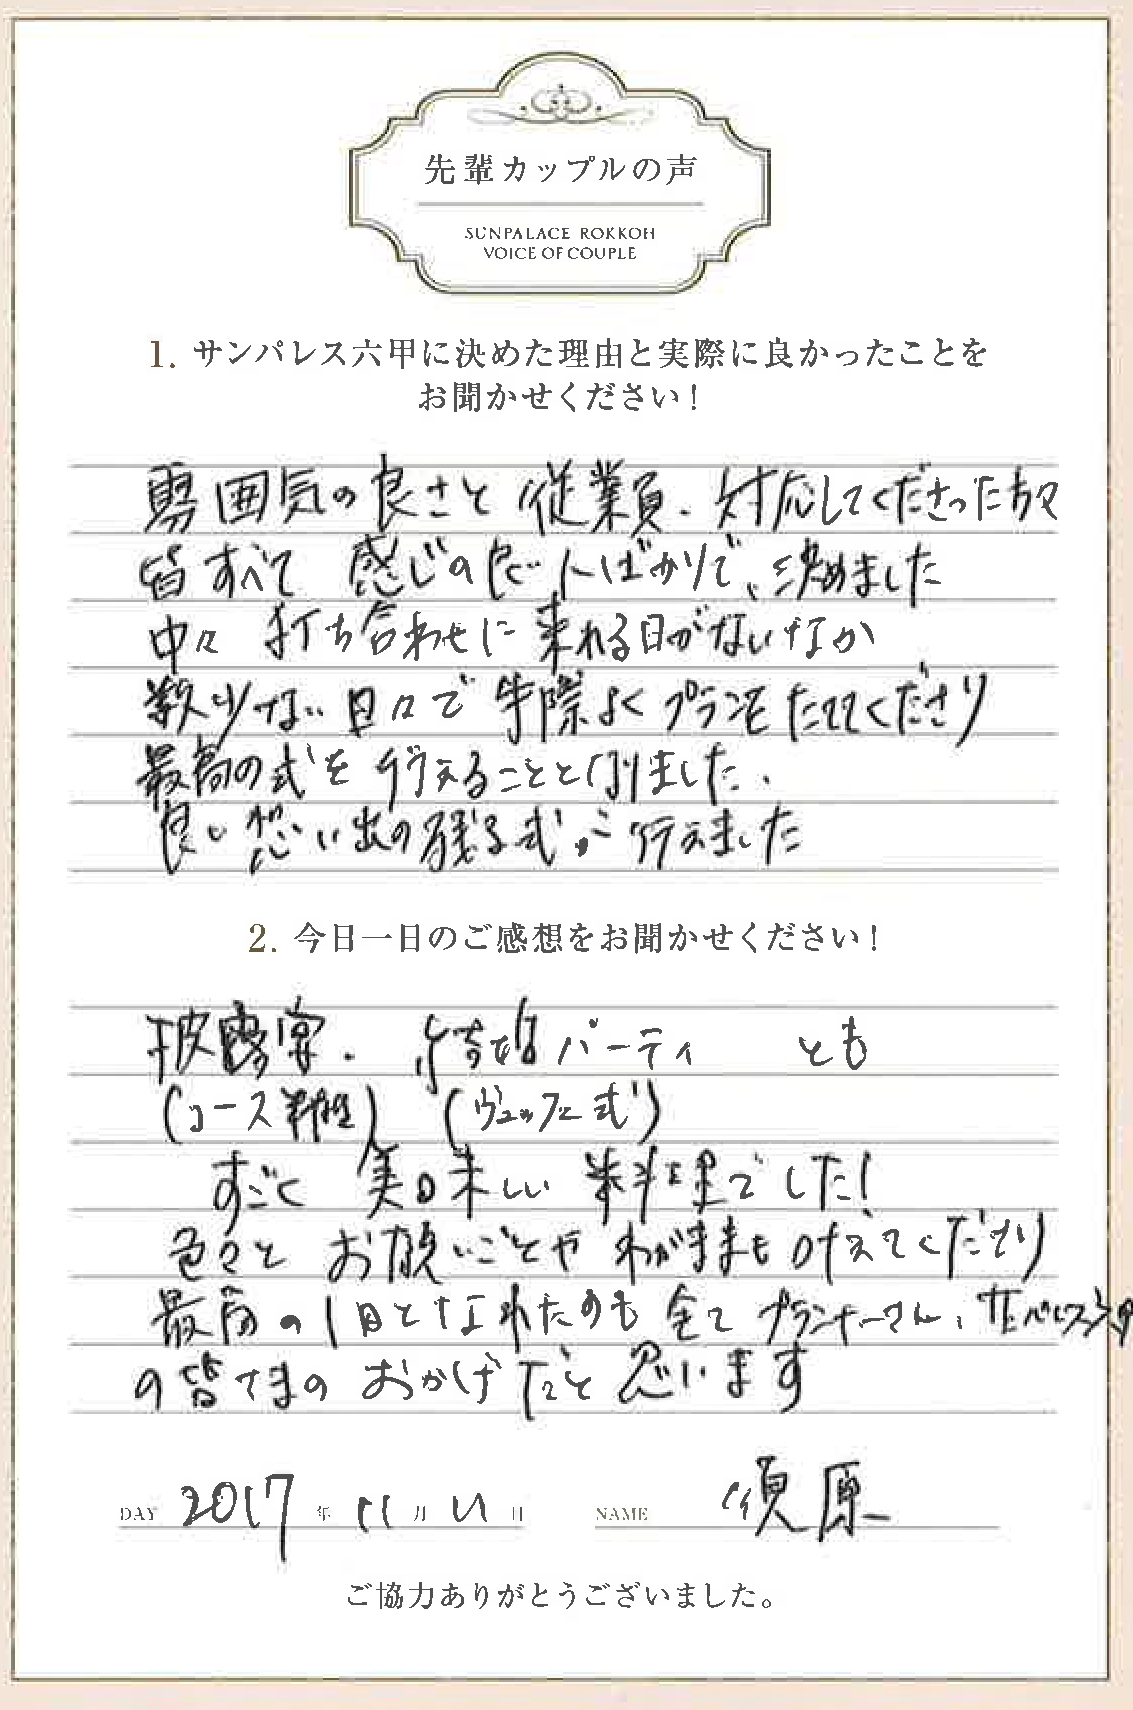 先輩カップルの声
SUNPALACE ROKKOH
VOICE OF COUPLE
1. サンパレス六甲に決めた理由と実際に良かったことを
お聞かせください!
雰囲気の良さと従業員、対応してくださった方々
皆すべて 感じの良い人ばかりで、決めました
中々 打ち合わせに来れる日がないなか
数少ない日々で手際よくプランをたててくださり
最高の式を行えることと成りました、
良い想い出の残る式が行えました
2. 今日一日のご感想をお聞かせください!
披露宴、結婚パーティ とも
(コース料理) (ヴュッフェ式)
すごく 美味しい 料理でした!
色々と お願いごとや わがままも叶えてくださり
最高の1日となれたのも 全て プランナーさん、
の皆さまの おかげだと 思います
DAY 2017 年 11 月 11 日 NAME 須原
ご協力ありがとうございました。